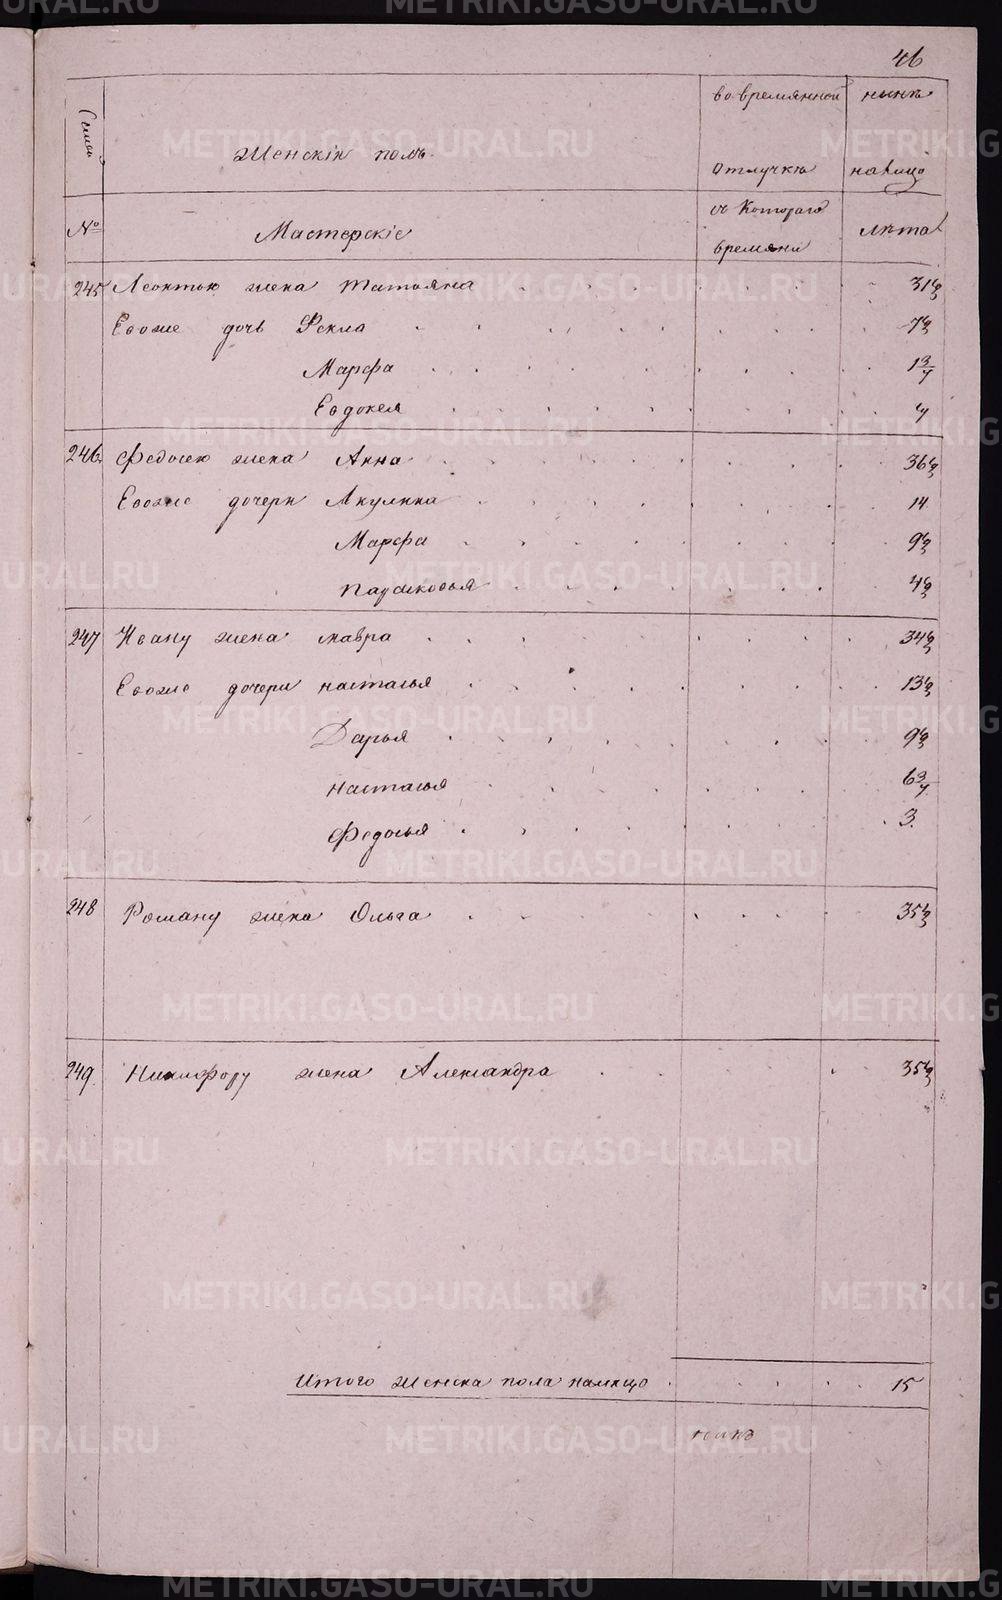 46
Семьи
Женскій полъ
во времянной
отлучкѣ
нынѣ
налицо
№
Мастерскіе
съ Котораго
времяни
лѣта
245 Леонтью жена Татьяна 31½
Евоже дочь Фекла 7½
Марфа 1¾
Евдокея ¼
246 Федосею жена Анна 36½
Евоже дочери Акулина 14
Марфа 9½
парасковья 4½
247 Ивану жена мавра 34½
Евоже дочери настасья 13½
Дарья 9½
настасья 6¾
Федосья 3
248 Роману жена Ольга 35½
249 Никифору жена Александра 35½
Итого женска пола налицо 15
METRIKI.GASO-URAL.RU